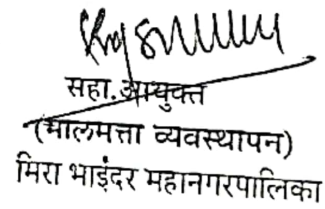 सहा. आयुक्त
(मालमत्ता व्यवस्थापन)
मिरा भाईंदर महानगरपालिका